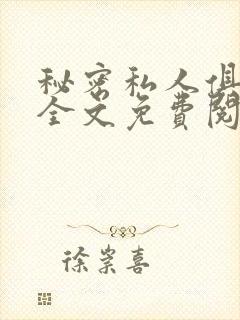 秘密私人俱
全文免费阅
徐崇喜